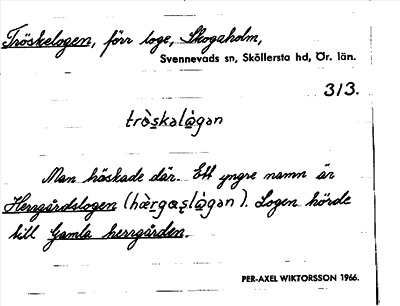 Tröskelogen, förr loge, Skogaholm,
Svennevads sn, Sköllersta hd, Ör. län.
313.
trò̀skalɑ̀gən
Man tröskade där. Ett yngre namn är
Herrgårdslogen (hæ̀rgɑslɑ̀gən). Logen hörde
till Gamla herrgården.
PER-AXEL WIKTORSSON 1966.